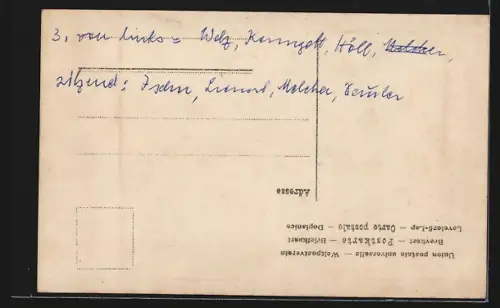 3. von links = Welz, Kenngott, Höll, Melcher,
sitzend: Melcher,
Adresse
Union postale universelle — Weltpostverein
Brevkort — Postkarte — Briefkaart
Levelező-Lap — Carte postale — Dopisnice